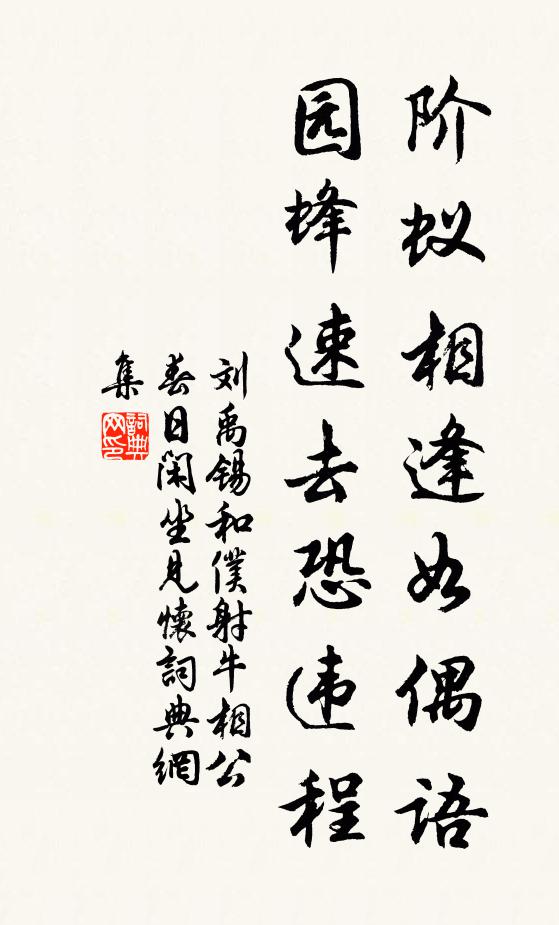 阶蚁相逢如偶语
园蜂速去恐违程
刘禹锡和僕射牛相公
春日闲坐見懐詞典網
集
詞典网印